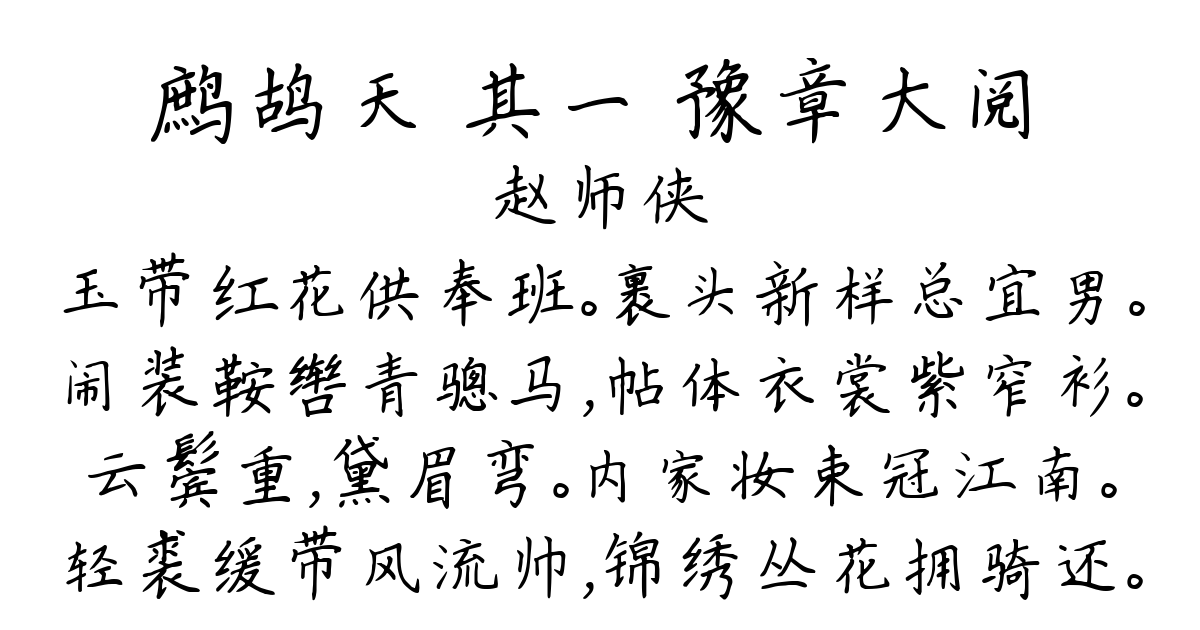 鹧鸪天 其一 豫章大阅
赵师侠
玉带红花供奉班。裹头新样总宜男。
闹装鞍辔青骢马,帖体衣裳紫窄衫。
云鬓重,黛眉弯。内家妆束冠江南。
轻裘缓带风流帅,锦绣丛花拥骑还。